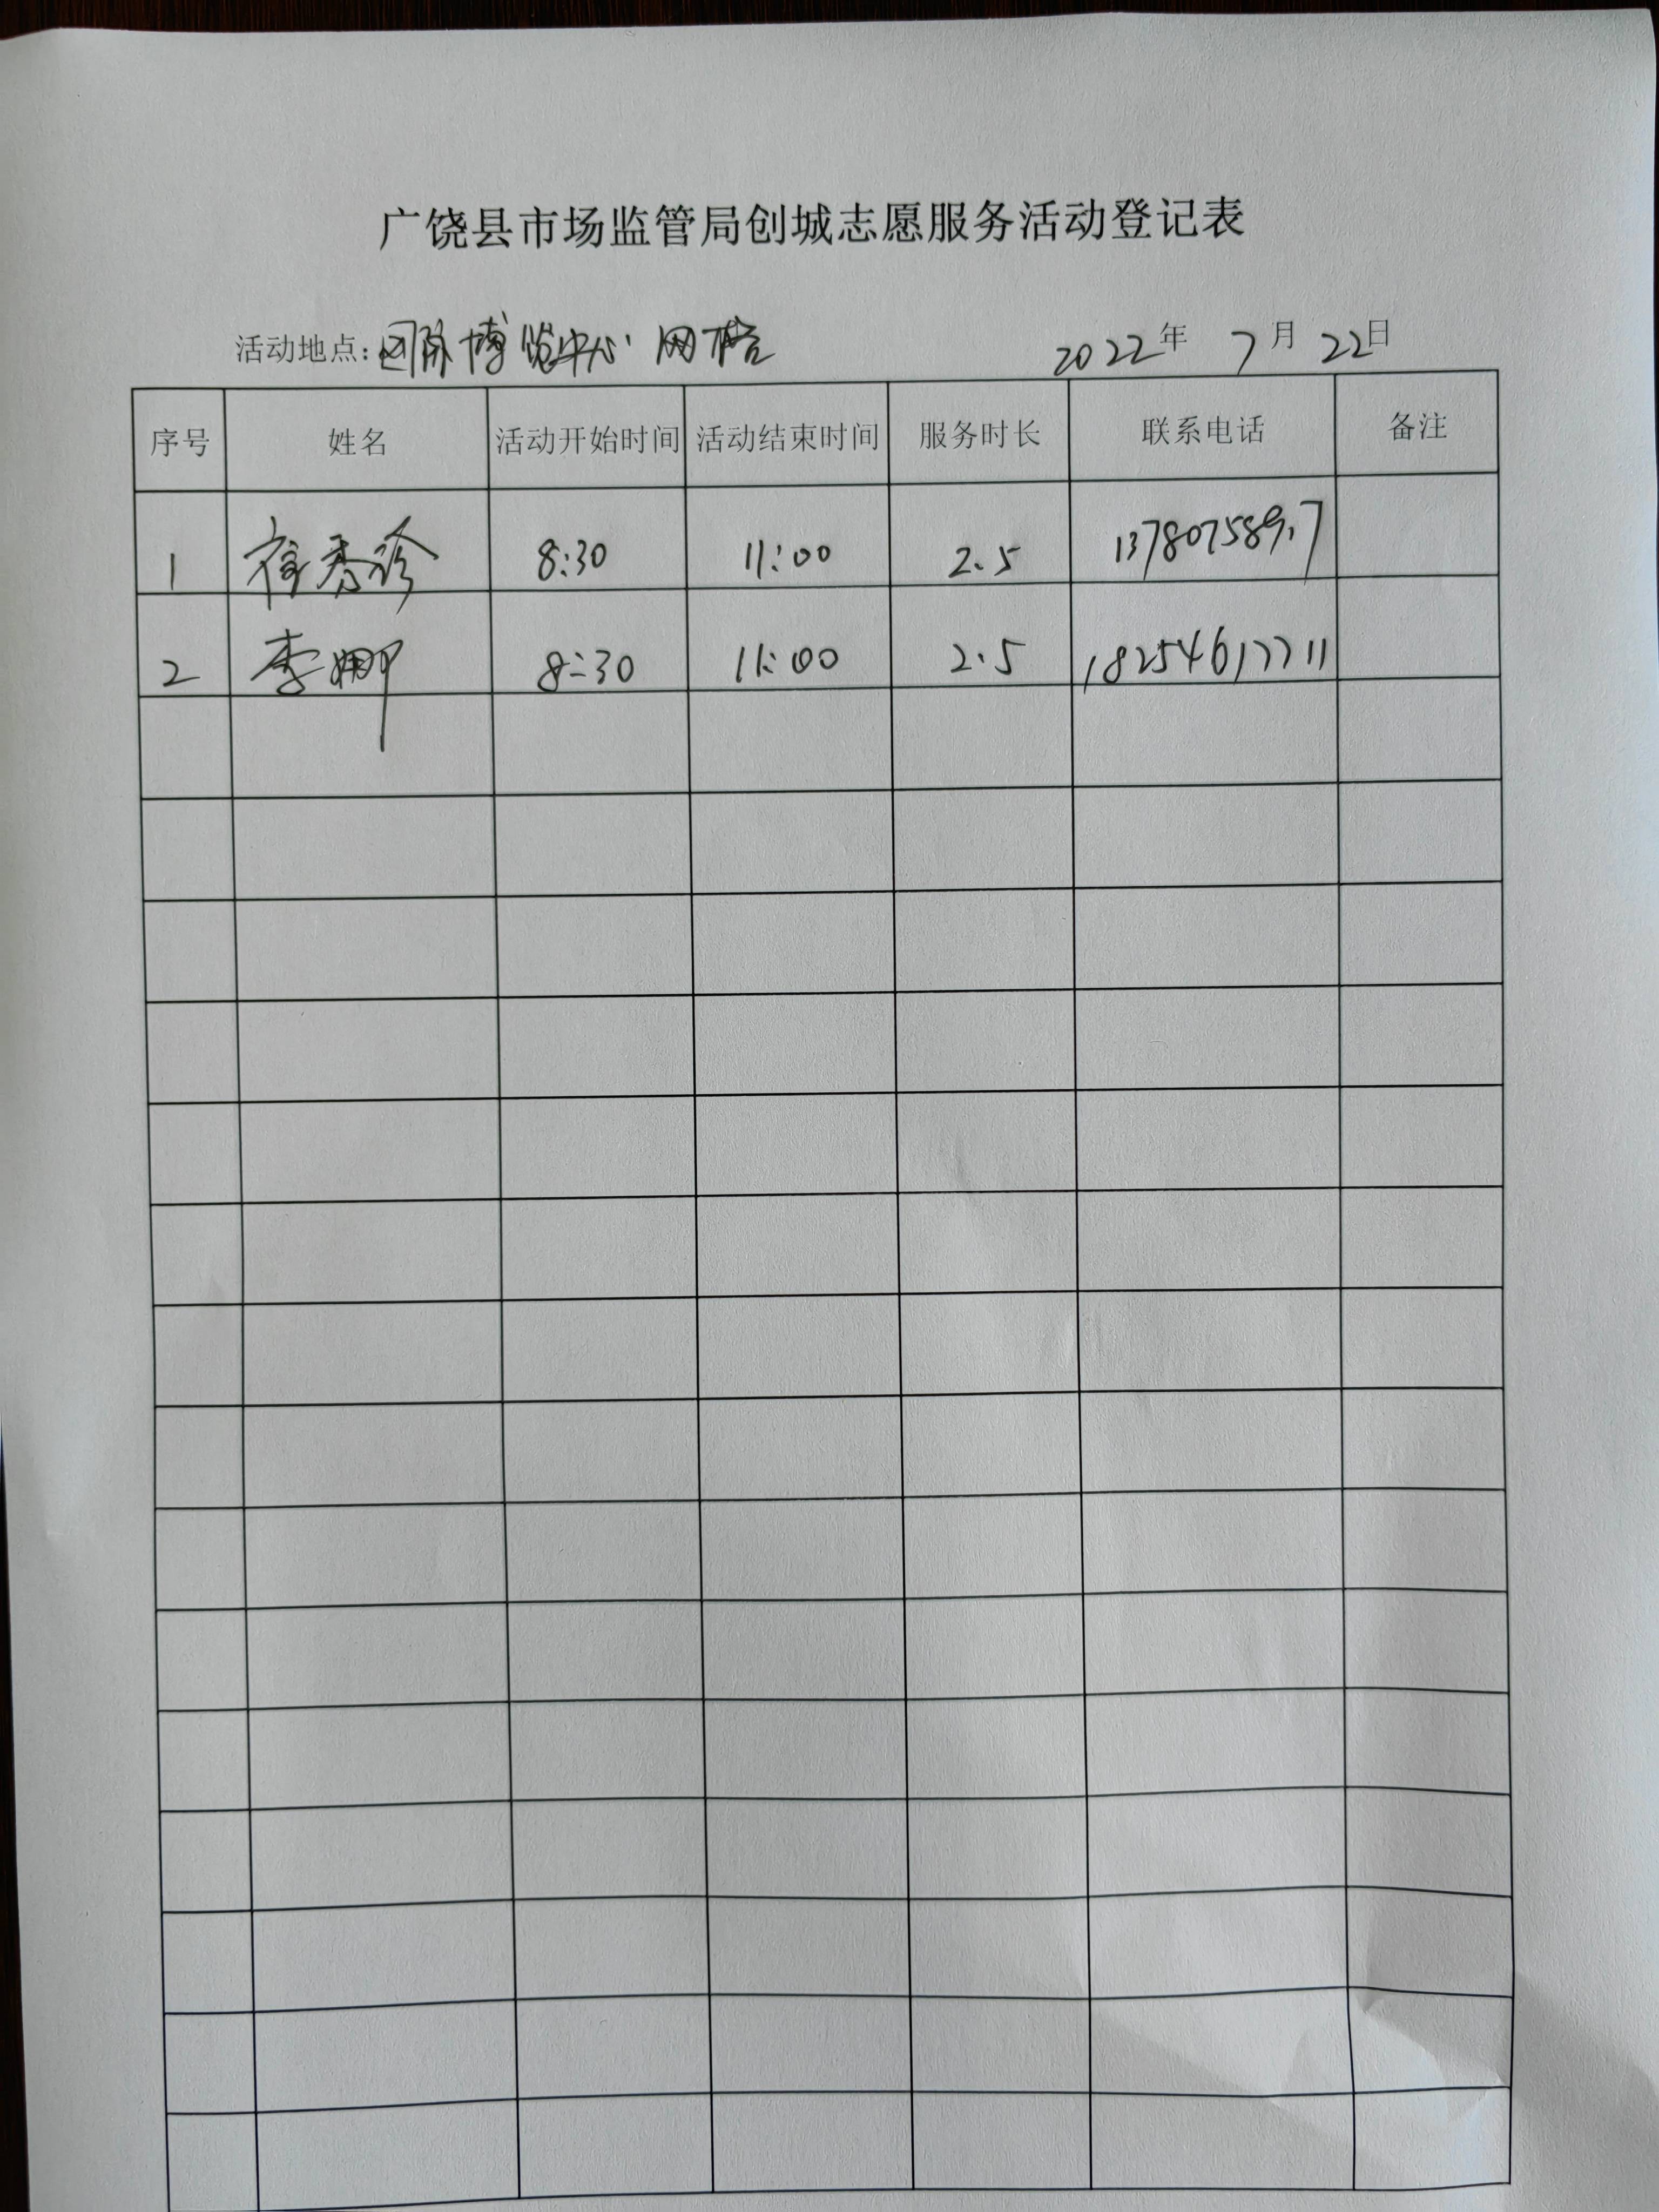 广饶县市场监管局创城志愿服务活动登记表
活动地点:国际博览中心网格 2022年 7月 22日
序号 姓名 活动开始时间 活动结束时间 服务时长 联系电话 备注
1 崔秀珍 8:30 11:00 2.5
2 李娜 8:30 11:00 2.5 18254617711